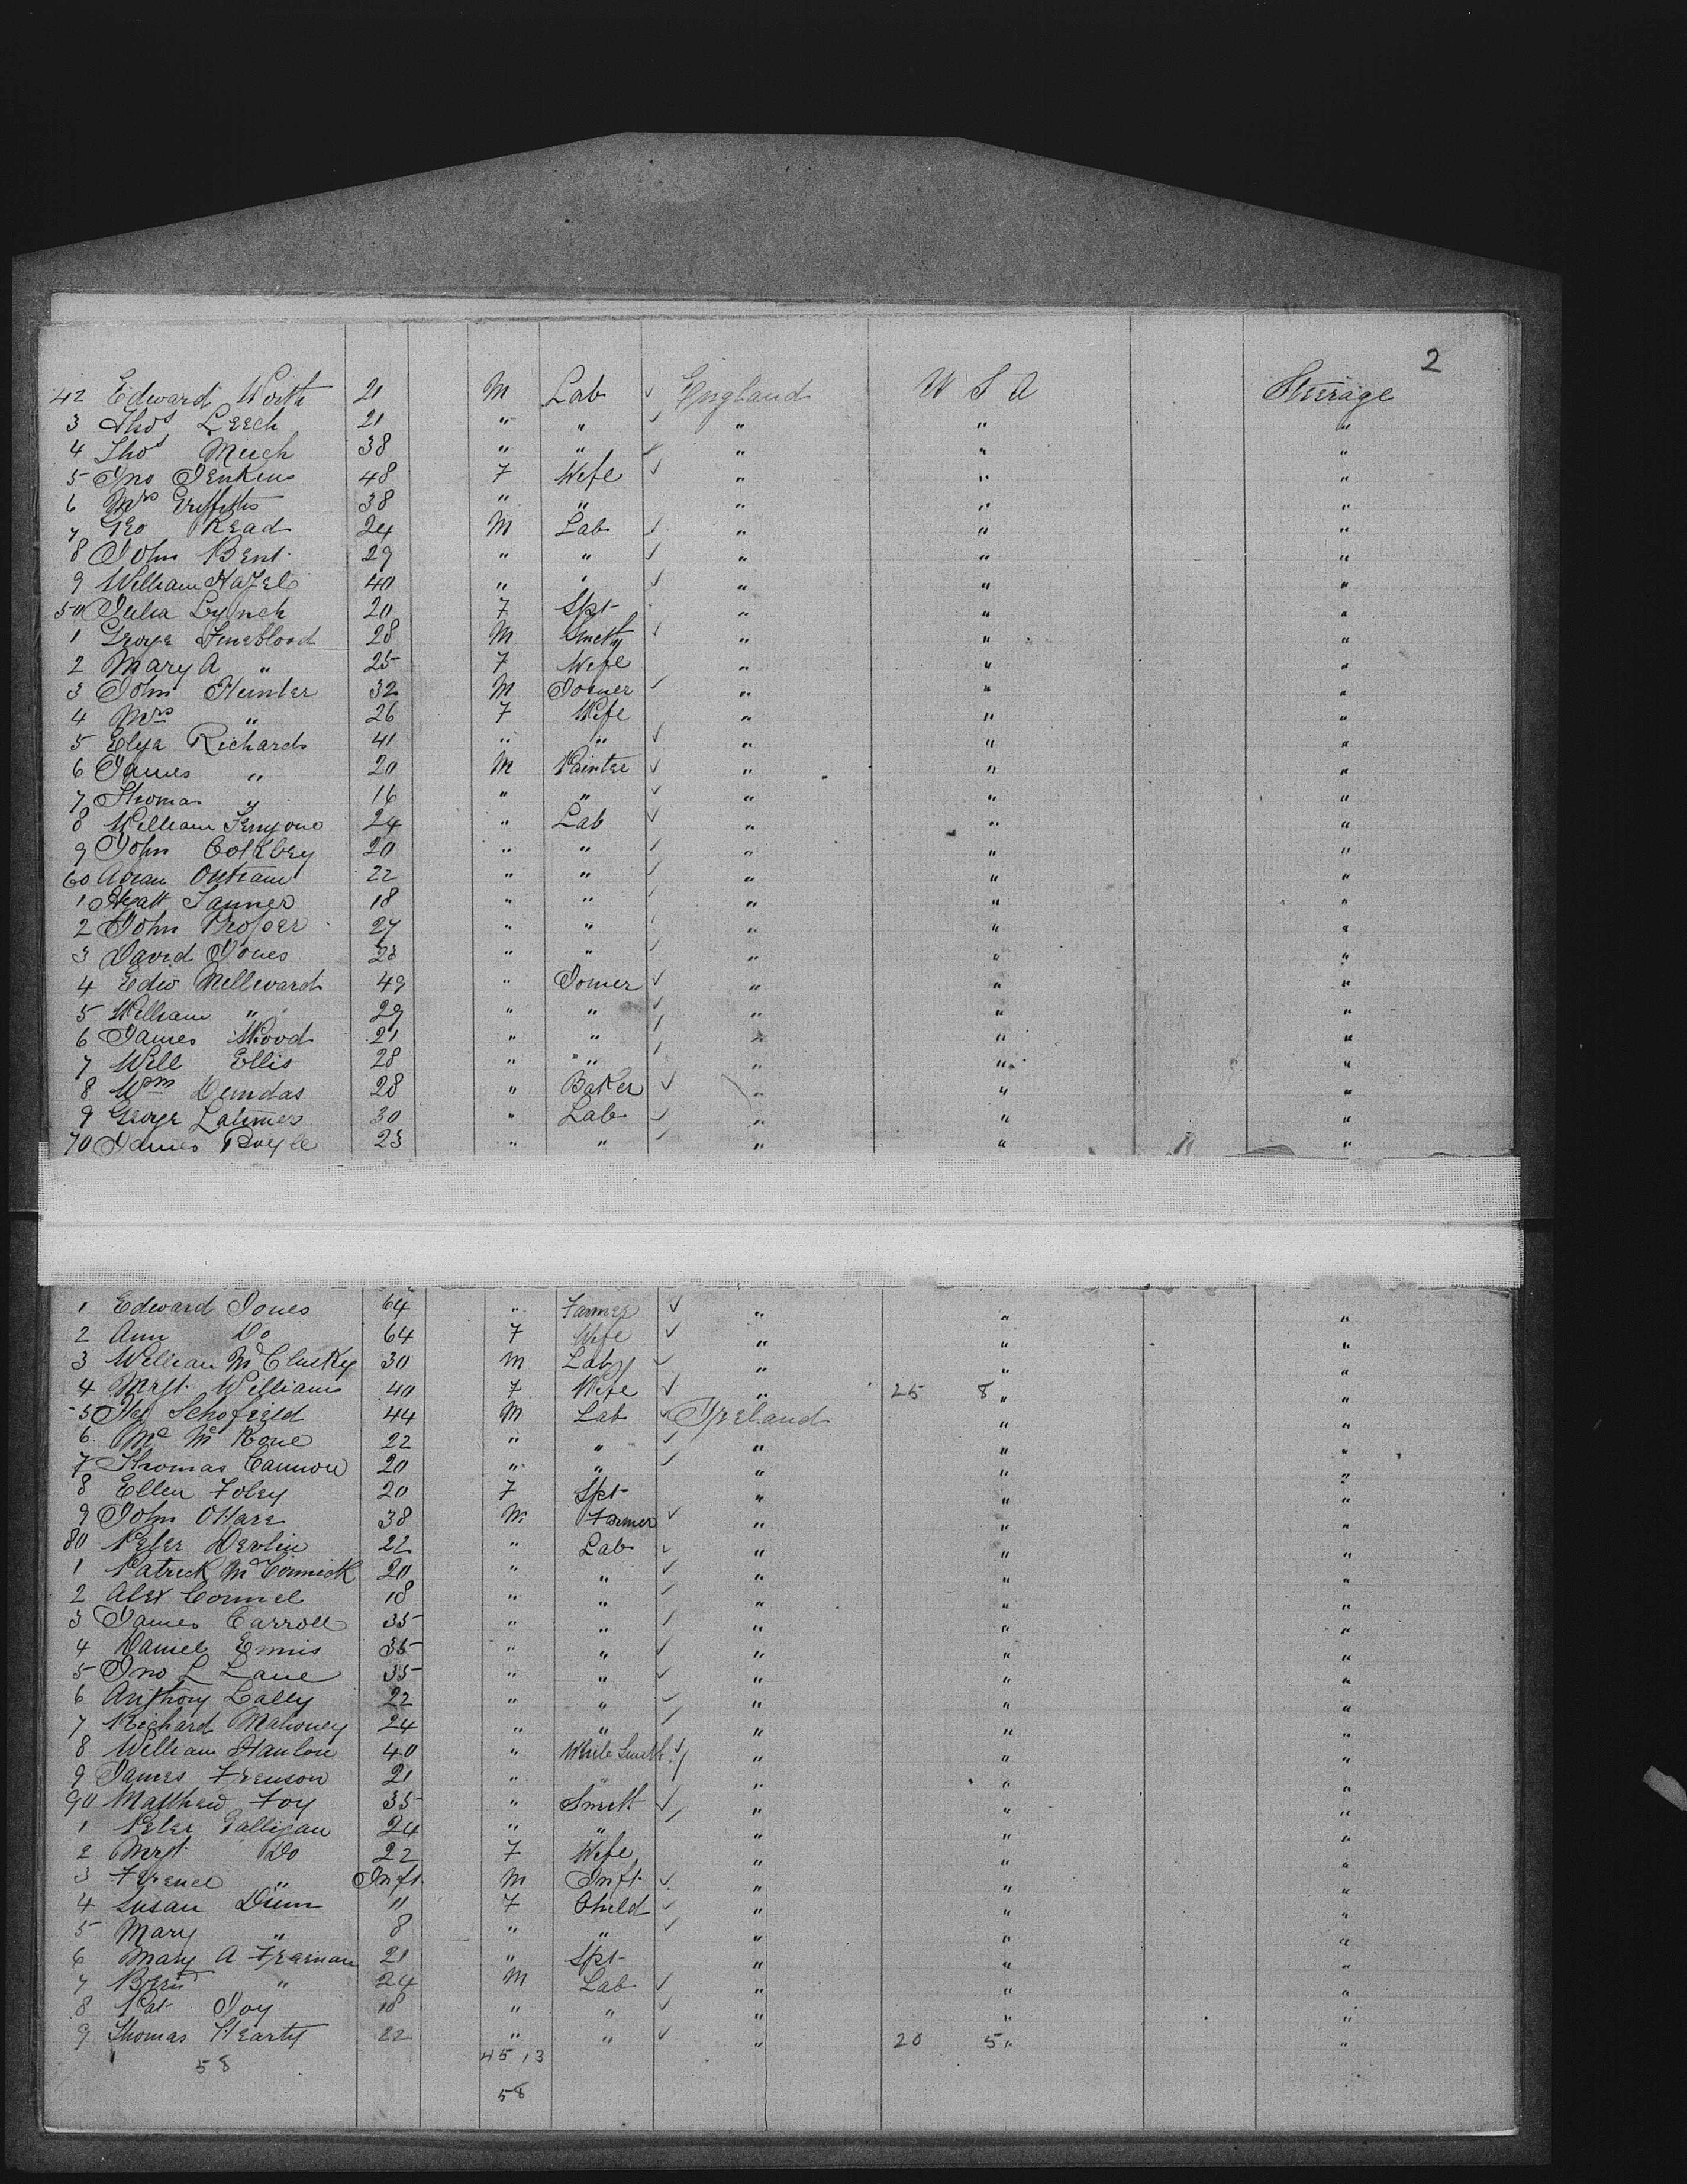 2
42 Edward Worth 21 M Lab ✓ England U S A Steerage
3 Thos Leech 21 " " ✓ " " "
4 Thos Much 38 " " ✓ " " "
5 Jno Jenkins 48 F Wife ✓ " " "
6 Mrs Griffiths 38 " " " " "
7 Geo Read 24 M Lab ✓ " " "
8 John Bent 29 " " ✓ " " "
9 William Hazel 40 " " ✓ " " "
50 Julia Lynch 20 F Spt " " "
1 George Fineblood 28 M Smith ✓ " " "
2 Mary A " 25 F Wife " " "
3 John Hunter 32 M Joiner ✓ " " "
4 Mrs " 26 F Wife " " "
5 Elya Richards 41 " " ✓ " " "
6 James " 20 M Painter ✓ " " "
7 Thomas " 16 " " ✓ " " "
8 William 24 " Lab ✓ " " "
9 John 20 " " ✓ " " "
60 Outram 22 " " ✓ " " "
1 Hyatt Tanner 18 " " ✓ " " "
2 John Prosser 27 " " ✓ " " "
3 David Jones 23 " " ✓ " " "
4 Edw Millward 49 " Joiner ✓ " " "
5 William " 29 " " ✓ " " "
6 James Wood 21 " " ✓ " " "
7 Will Ellis 28 " " ✓ " " "
8 Wm Dundas 28 " Baker ✓ " " "
9 George Latimer 30 " Lab ✓ " " "
70 James Boyle 23 " " ✓ " " "
1 Edward Jones 64 " Farmer ✓ " " "
2 Ann Do 64 F Wife ✓ " " "
3 William McClusky 30 M Lab ✓ " " "
4 Mrgt Williams 40 F Wife ✓ " 25 8 " "
5 Schofield 44 M Lab ✓ Ireland " "
6 Mc Kone 22 " " ✓ " " "
7 Thomas Cannon 20 " " ✓ " " "
8 Ellen Foley 20 F Spt " " "
9 John OHare 38 M Farmer ✓ " " "
80 Peter Devlin 22 " Lab ✓ " " "
1 Patrick McCormick 20 " " ✓ " " "
2 Alex Connel 18 " " ✓ " " "
3 James Carroll 35 " " ✓ " " "
4 Daniel Ennis 35 " " ✓ " " "
5 Jno L Lane 35 " " ✓ " " "
6 Anthony Lally 22 " " ✓ " " "
7 Richard Mahoney 24 " " ✓ " " "
8 William Hanlon 40 " White Smith ✓ " " "
9 James 21 " " ✓ " " "
90 Matthew Foy 35 " Smith ✓ " " "
1 Peter Galligan 24 " " ✓ " " "
2 Mrgt Do 22 F Wife " " "
3 " Inft M Inft ✓ " " "
4 Susan Dunn 11 F Child ✓ " " "
5 Mary " 8 " " ✓ " " "
6 Mary A 21 " Spt " " "
7 Bern " 24 M Lab ✓ " " "
8 Pat Joy 18 " " ✓ " " "
9 Thomas Hearty 22 " " ✓ " 20 5 " "
58 45 13
58